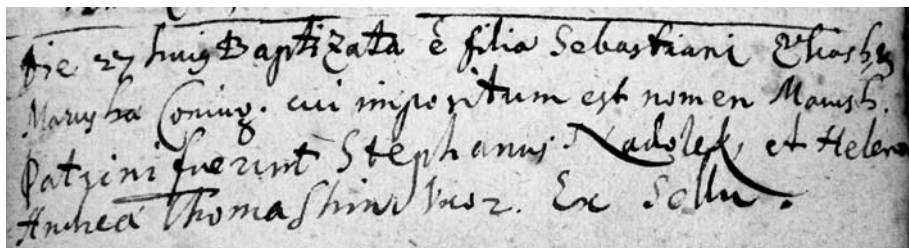 Die 27 huig Baptizata ē filia Sebastiani
Marusha Coniug. cui impositum est nomen Marush.
Patrini fuerunt Stephanus Radolek, et Helena
Andrea Thomashin Uxor. Ex Sellu.